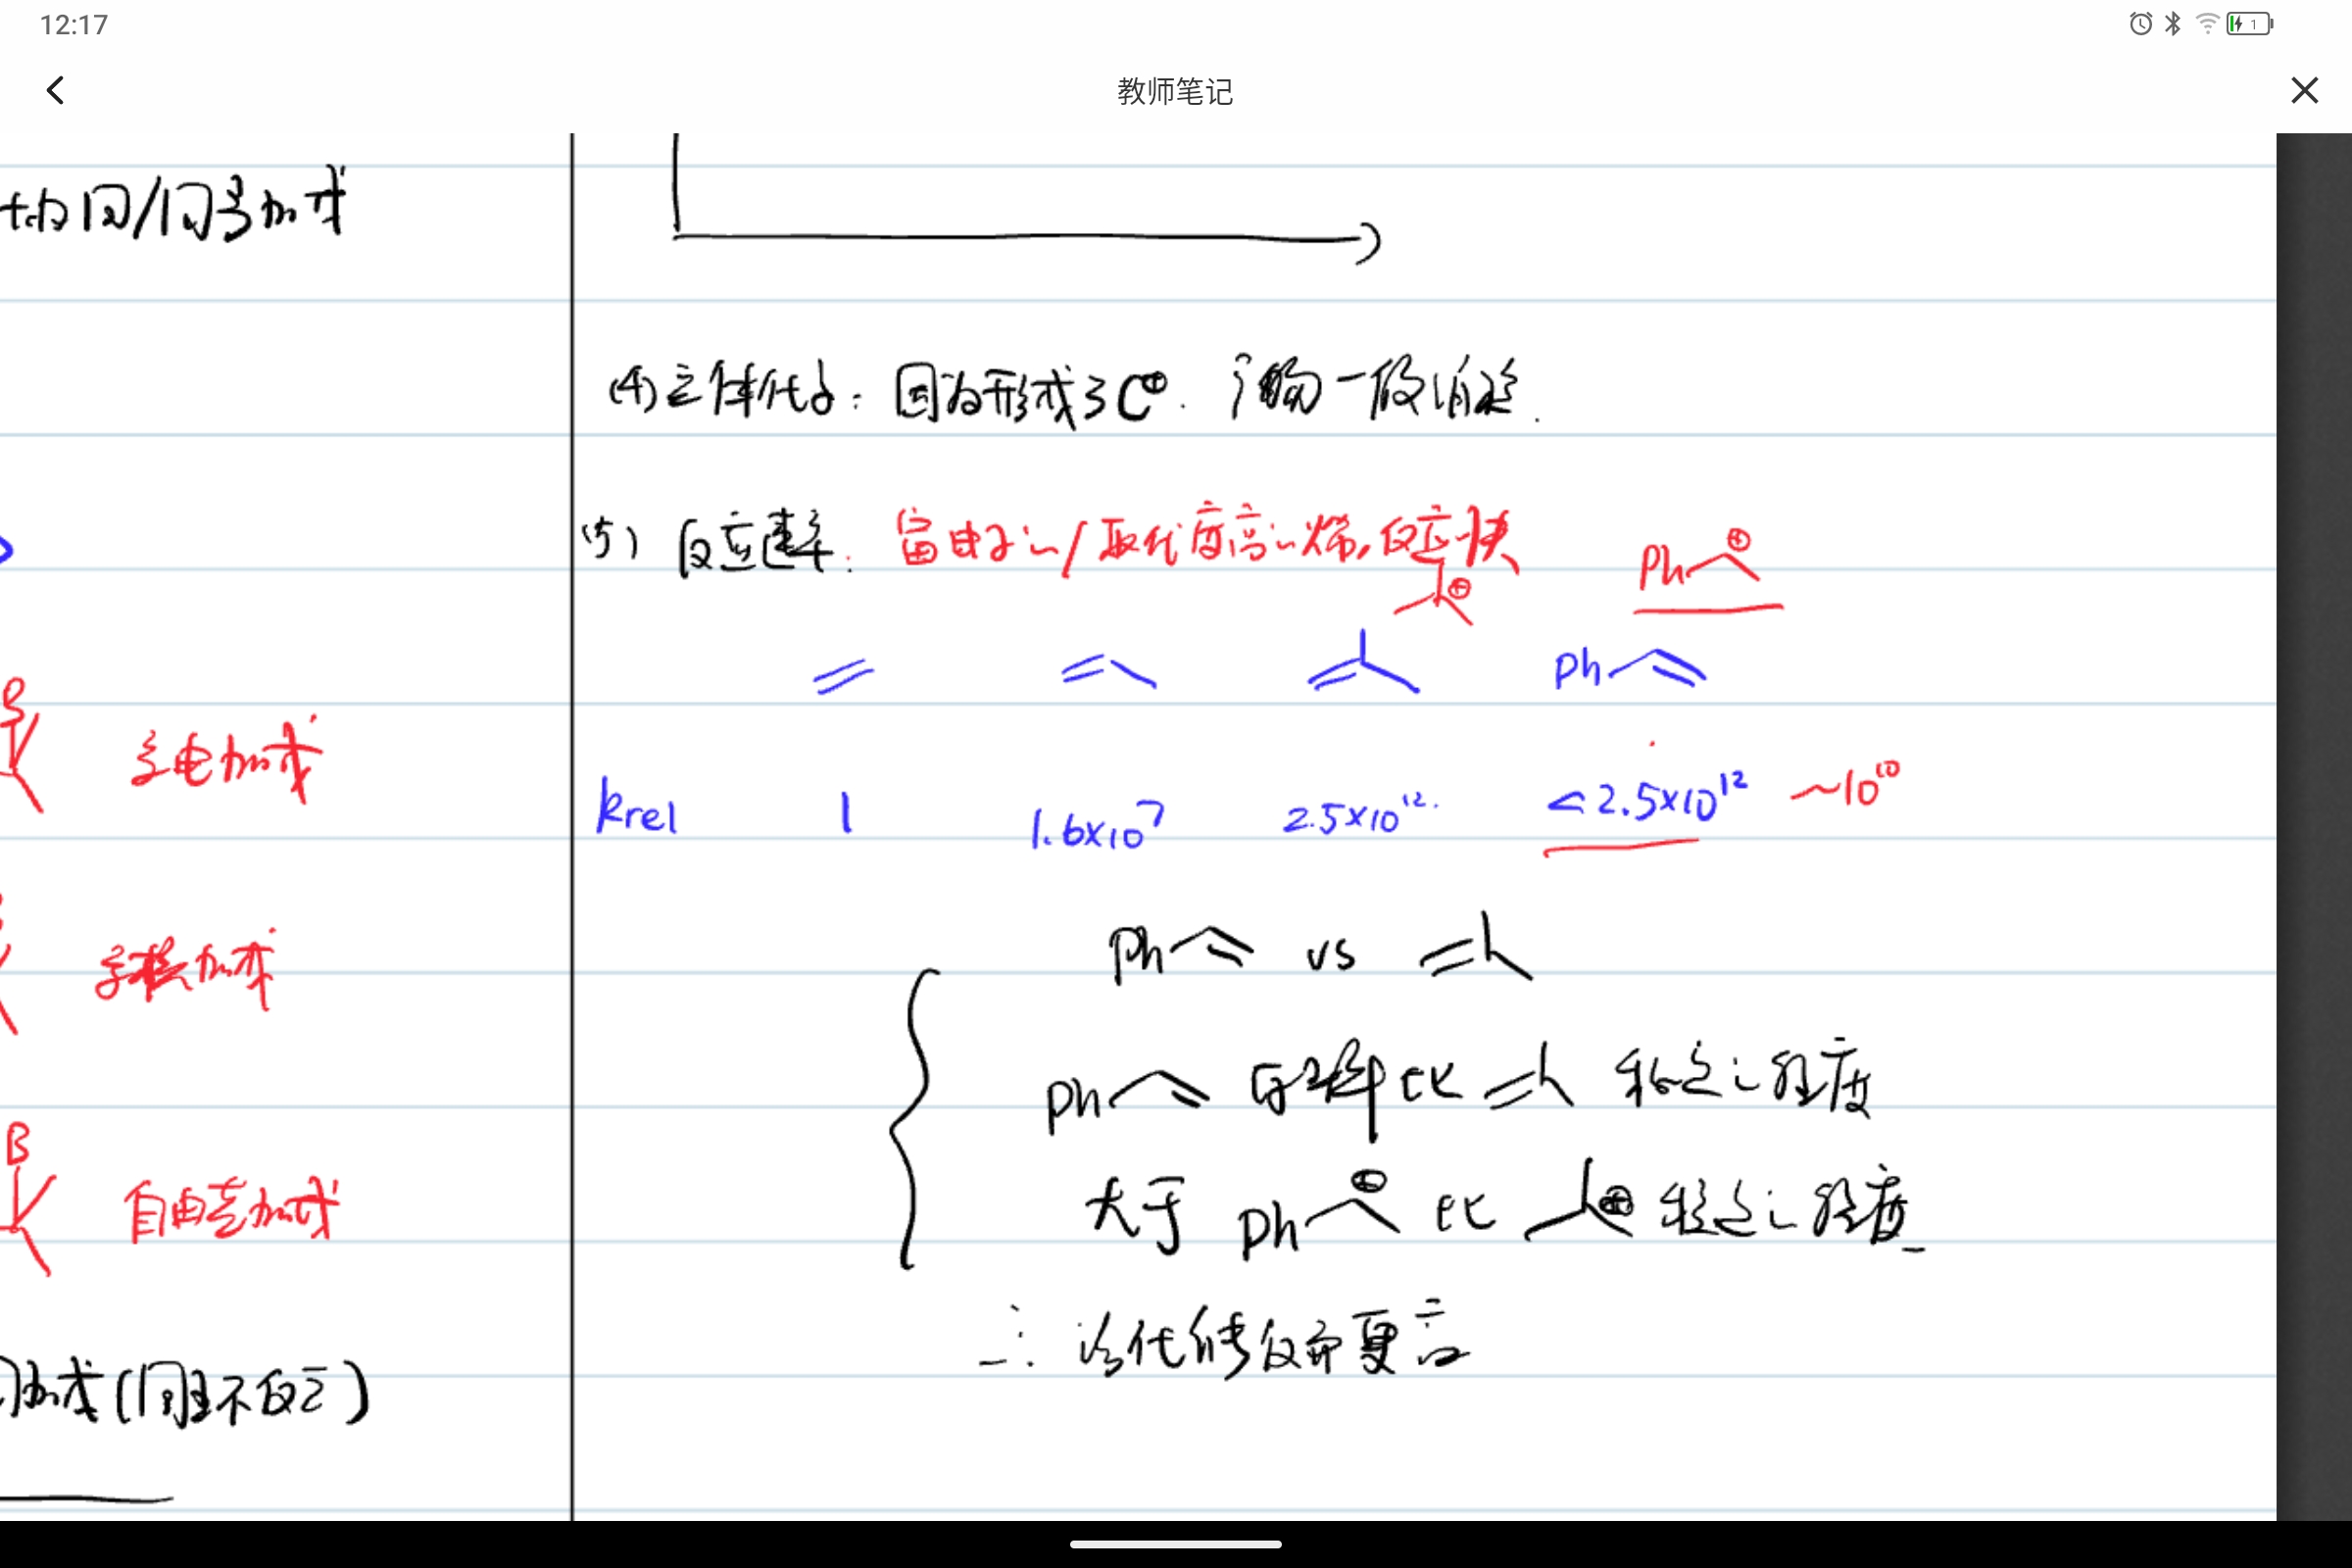 12:17
1
教师笔记
的同/同号加成
亲电加成
亲核加成
B
自由基加成
加成(同且不反应)
(4) 立体化学: 因为形成了C⊕. 产物一般消旋.
(5) 反应速率: 富电子的/取代度高的烯,反应快
⊕
Ph ⊕
Ph
krel 1 1.6×10⁷ 2.5×10¹². <2.5×10¹² ~10¹⁰
Ph vs
Ph 比 稳定的程度
大于 Ph ⊕ 比 ⊕ 稳定的程度
∴ 活化能反而更高